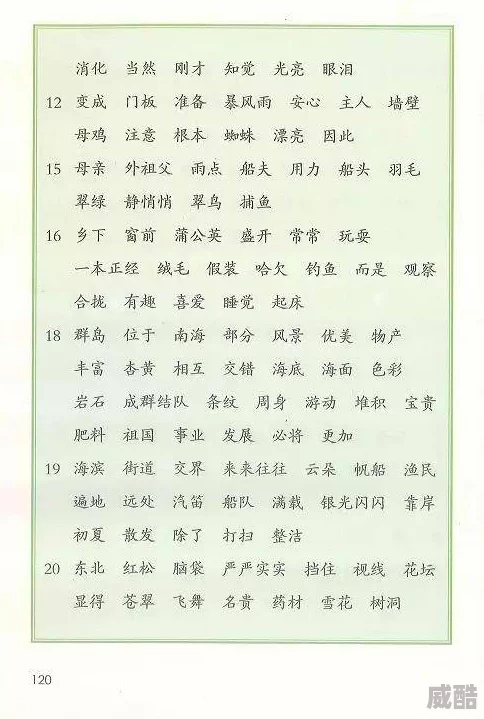 消化 当然 刚才 知觉 光亮 眼泪
12 变成 门板 准备 暴风雨 安心 主人 墙壁
母鸡 注意 根本 蜘蛛 漂亮 因此
15 母亲 外祖父 雨点 船夫 用力 船头 羽毛
翠绿 静悄悄 翠鸟 捕鱼
16 乡下 窗前 蒲公英 盛开 常常 玩耍
一本正经 绒毛 假装 哈欠 钓鱼 而是 观察
合拢 有趣 喜爱 睡觉 起床
18 群岛 位于 南海 部分 风景 优美 物产
丰富 杏黄 相互 交错 海底 海面 色彩
岩石 成群结队 条纹 周身 游动 堆积 宝贵
肥料 祖国 事业 发展 必将 更加
19 海滨 街道 交界 来来往往 云朵 帆船 渔民
遍地 远处 汽笛 船队 满载 银光闪闪 靠岸
初夏 散发 除了 打扫 整洁
20 东北 红松 脑袋 严严实实 挡住 视线 花坛
显得 苍翠 飞舞 名贵 药材 雪花 树洞
120
威酷